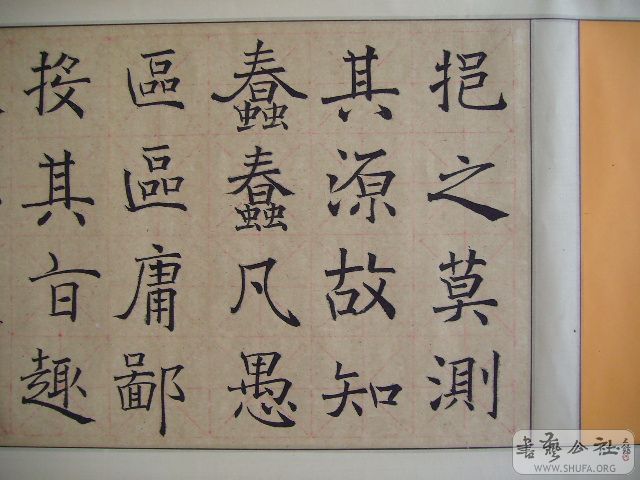 挹之莫測
其源故知
蠢蠢凡愚
區區庸鄙
投其旨趣
書藝公社
WWW.SHUFA.ORG